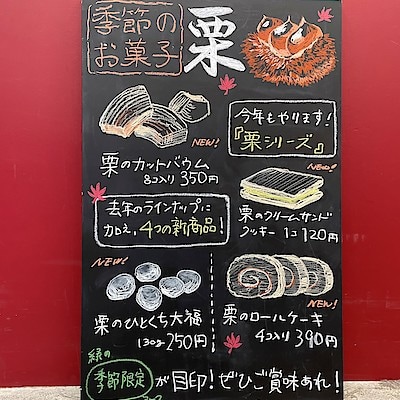 季節の
お菓子
栗
今年もやります!
『栗シリーズ』
NEW!
栗のカットバウム
8コ入り 350円
去年のラインナップに
加え、4つの新商品!
NEW!
栗のクリームサンド
クッキー 1コ 120円
NEW!
栗のひとくち大福
130g 250円
NEW!
栗のロールケーキ
4コ入り 390円
緑の
季節限定
が目印!ぜひご賞味あれ!